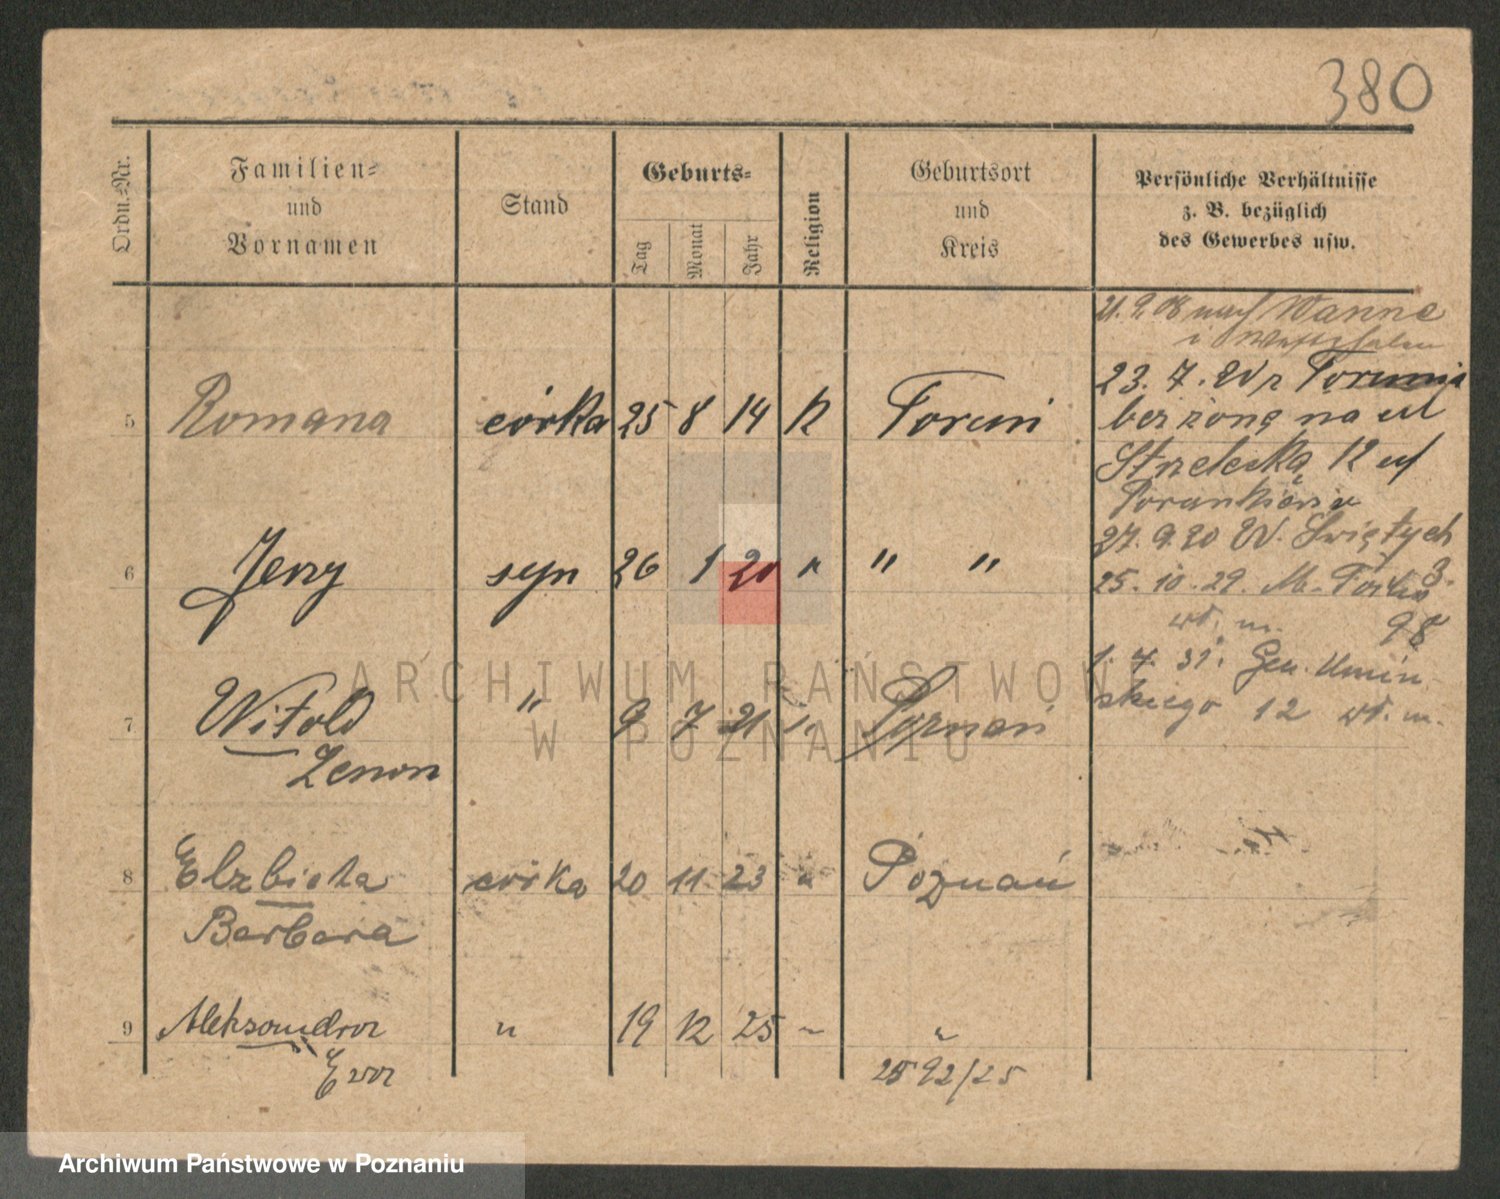 380
Ordn.-Nr.
Familien-
und
Vornamen
Stand
Geburts-
Tag
Monat
Jahr
Religion
Geburtsort
und
Kreis
Persönliche Verhältnisse
z. B. bezüglich
des Gewerbes usw.
21. 9. 08 nach Wanne
i Westfalen
23. 7. W z Torunia
bez żony na ul
Strzelecką 12 u
27. 9. 20 W. Świętych 3.
25. 10. 29. M. Focha 98
wł. m.
1. 4. 31. Gen. Umiń-
skiego 12 wł. m.
5 Romana córka 25 8 14 k Toruń
6 Jerzy syn 26 1 20 " " "
7 Witold " 9 7 21 " Poznań
Zenon
8 Elzbieta córka 20 11 23 " Poznań
Barbara
9 Aleksandra " 19 12 25 " "
Ewa 2592/25
ARCHIWUM PAŃSTWOWE
W POZNANIU
Archiwum Państwowe w Poznaniu